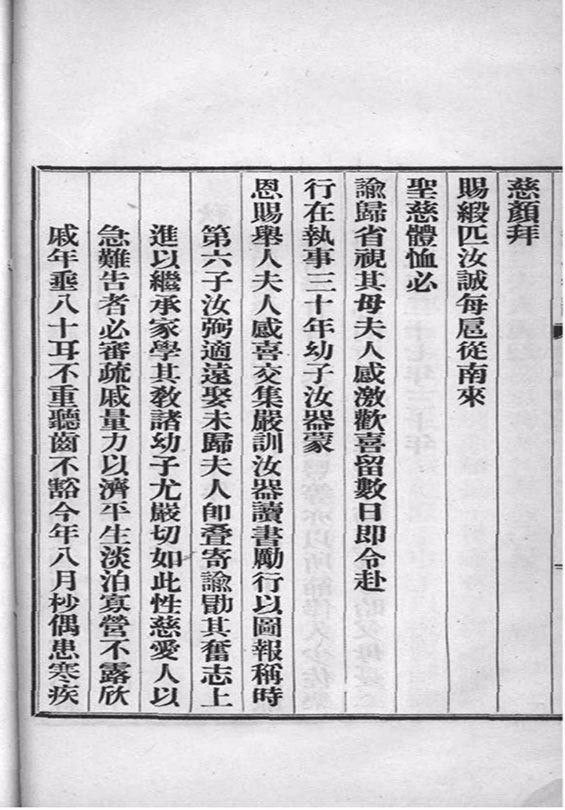 慈顏拜
賜緞匹汝誠每扈從南來
聖慈體恤必
諭歸省視其母夫人感激歡喜留數日即令赴
行在執事三十年幼子汝器蒙
恩賜舉人夫人感喜交集嚴訓汝器讀書勵行以圖報稱時
第六子汝弼適遠娶未歸夫人卽叠寄諭勖其奮志上
進以繼承家學其敎諸幼子尤嚴切如此性慈愛人以
急難告者必審疏戚量力以濟平生淡泊寡營不露欣
戚年垂八十耳不重聽齒不豁今年八月杪偶患寒疾